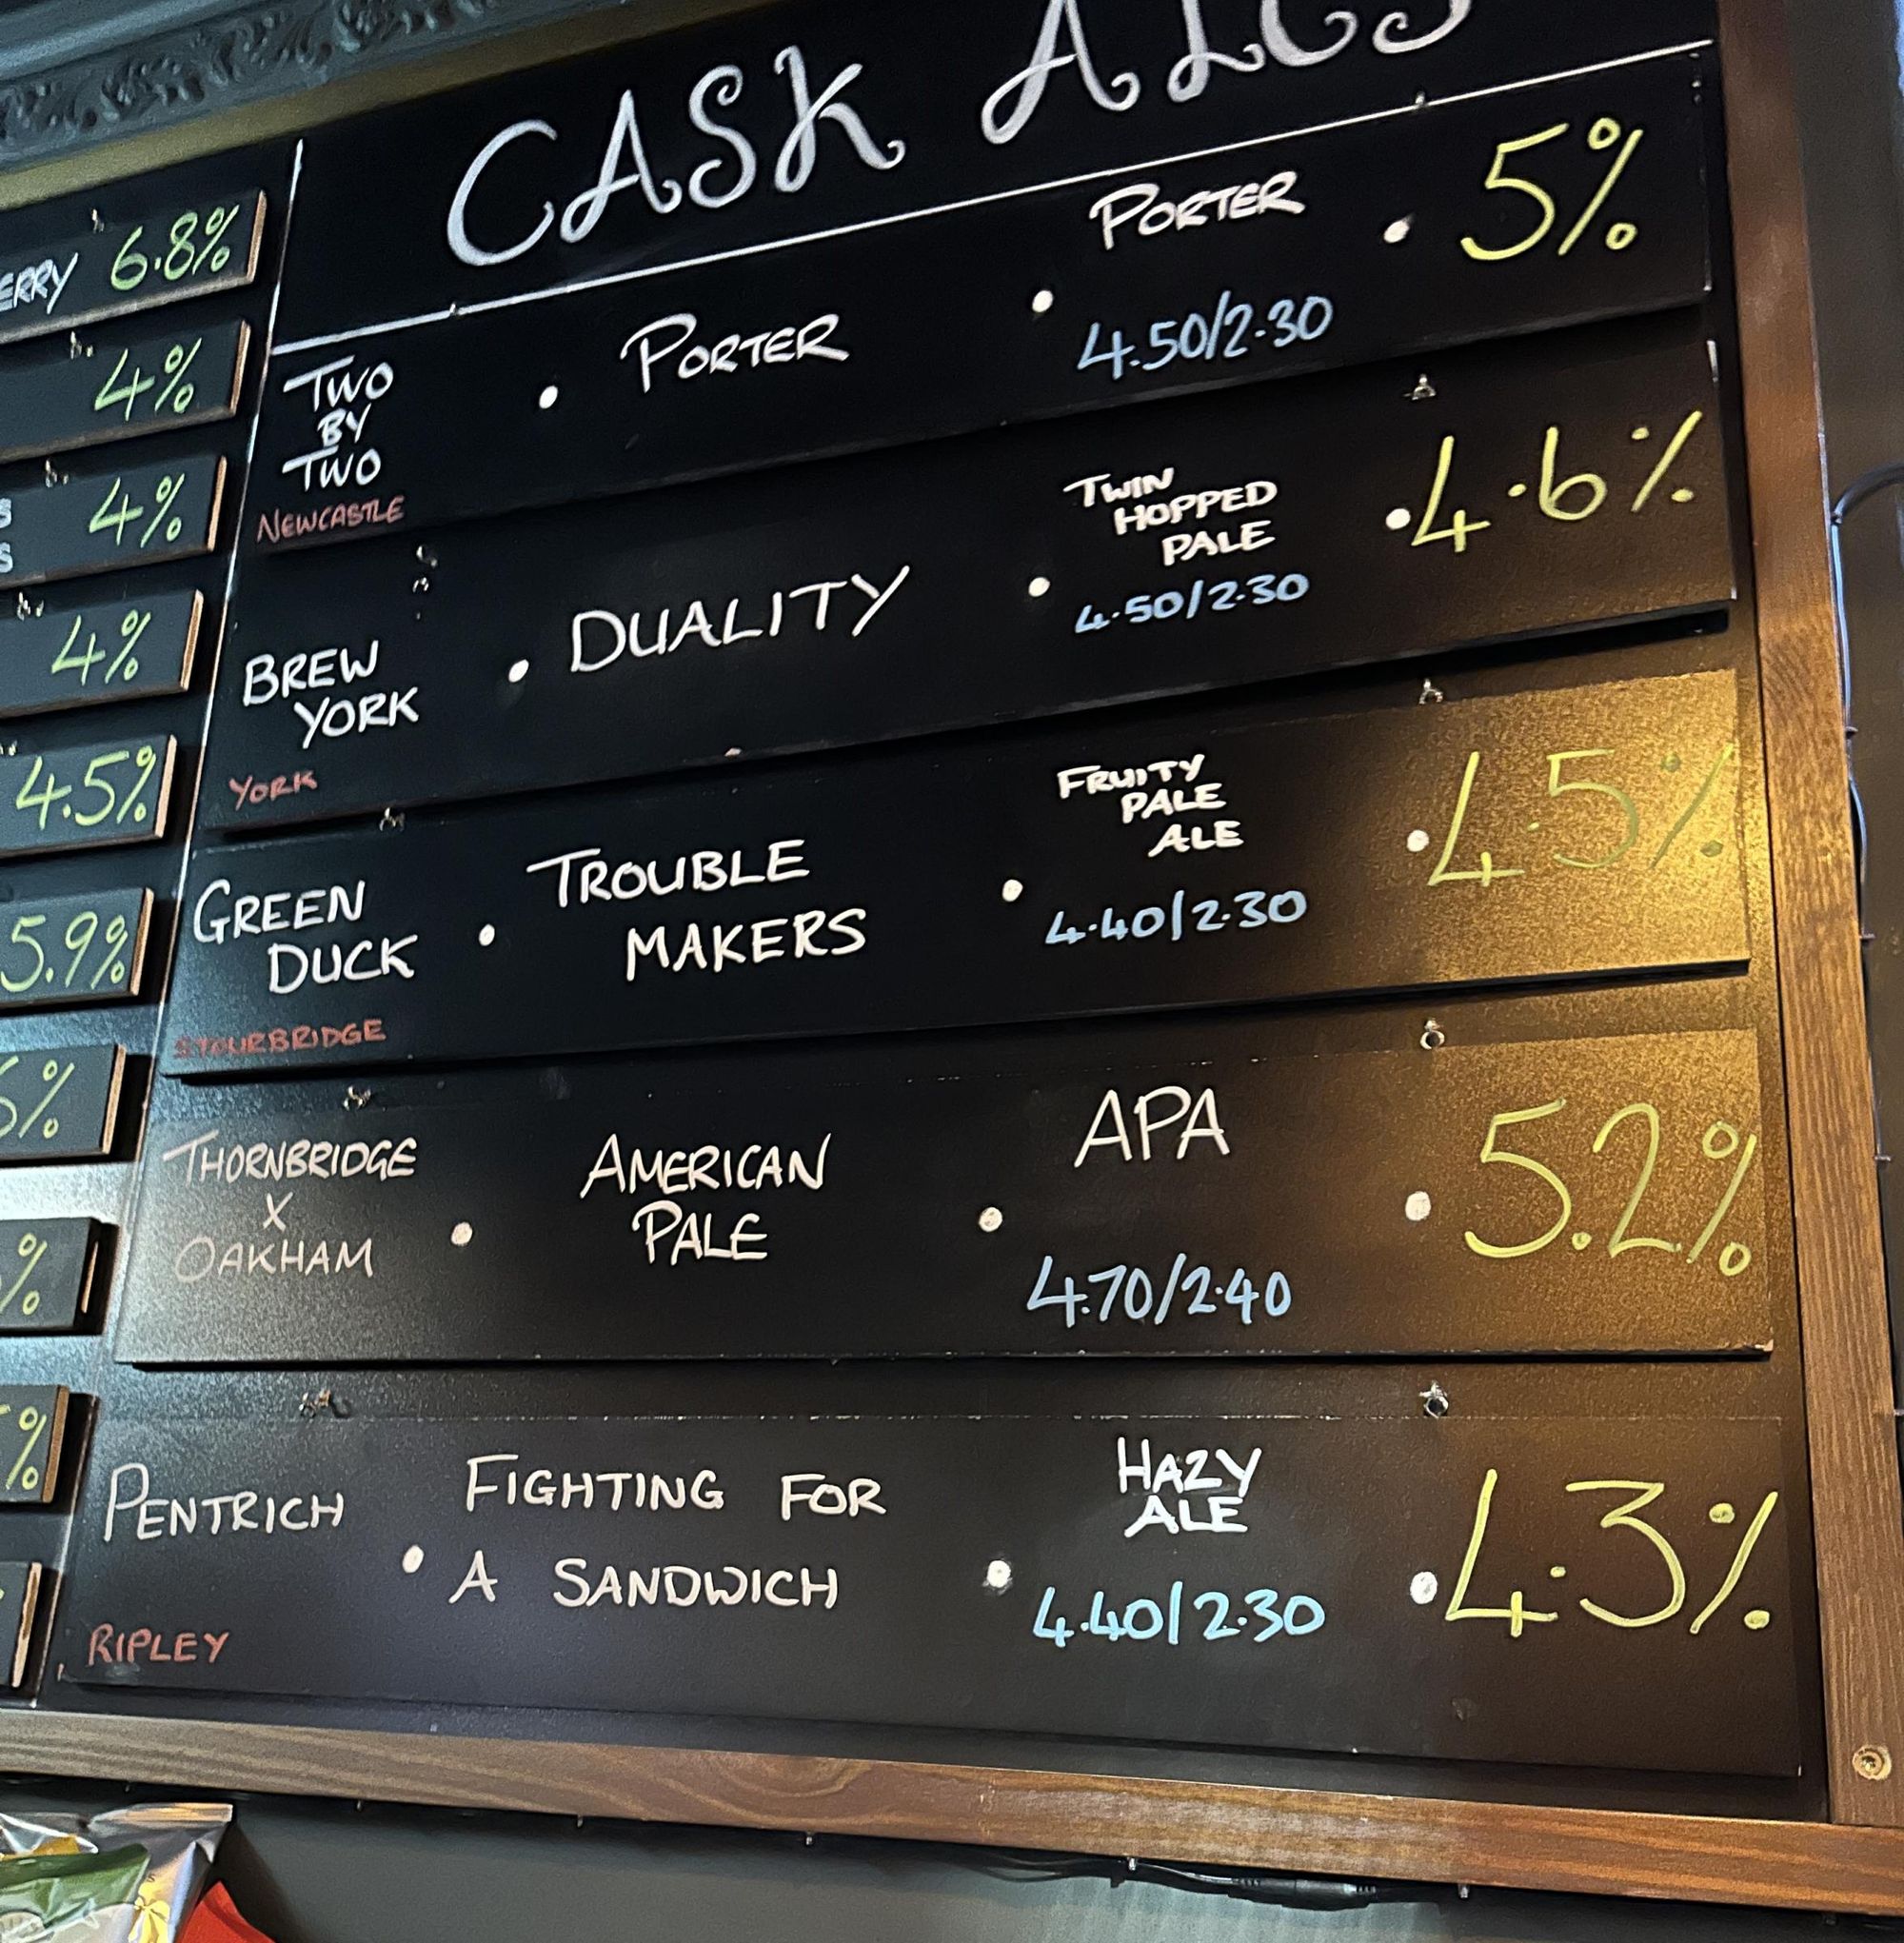 CASK ALES
TWO
BY
TWO
NEWCASTLE
PORTER
PORTER
4.50/2.30
5%
BREW
YORK
YORK
DUALITY
TWIN
HOPPED
PALE
4.50/2.30
4.6%
GREEN
DUCK
STOURBRIDGE
TROUBLE
MAKERS
FRUITY
PALE
ALE
4.40/2.30
4.5%
THORNBRIDGE
X
OAKHAM
AMERICAN
PALE
APA
4.70/2.40
5.2%
PENTRICH
RIPLEY
FIGHTING FOR
A SANDWICH
HAZY
ALE
4.40/2.30
4.3%
ERRY 6.8%
4%
4%
4%
4.5%
5.9%
%
%
%